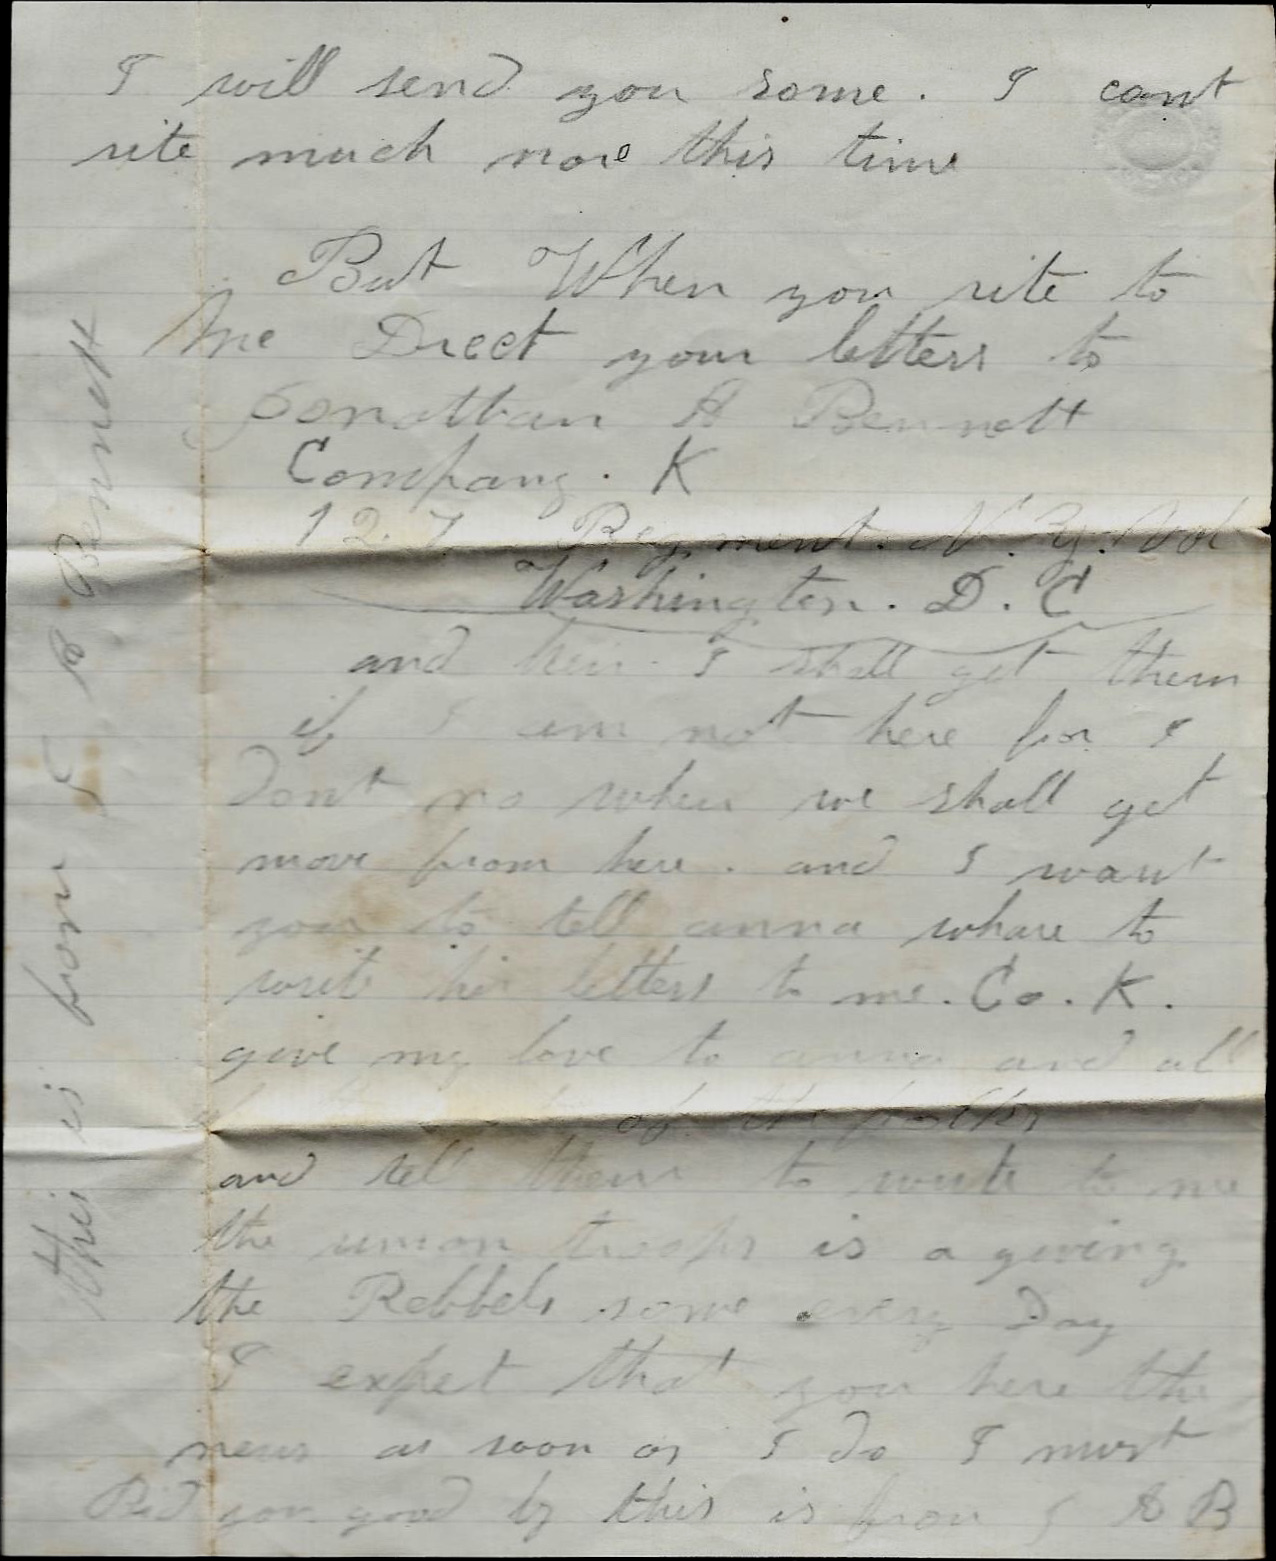 I will send you some. I cant
rite much more this time
But When you rite to
me Drect your letters to
Jonathan A Bennett
Company. K
127 Regment. N.Y. Vol
Washington. D.C
and I shall get them
if I am not here for I
dont no when we shall get
move from here. and I want
you to tell anna whare to
write his letters to me. Co. K.
give my love to anna and all
of the folks
and tell them to write to me
the union troops is a giving
the Rebbels some every Day
I expet that you here the
news as soon as I do I must
Bid you good by this is from J A B
this is from J A Bennett